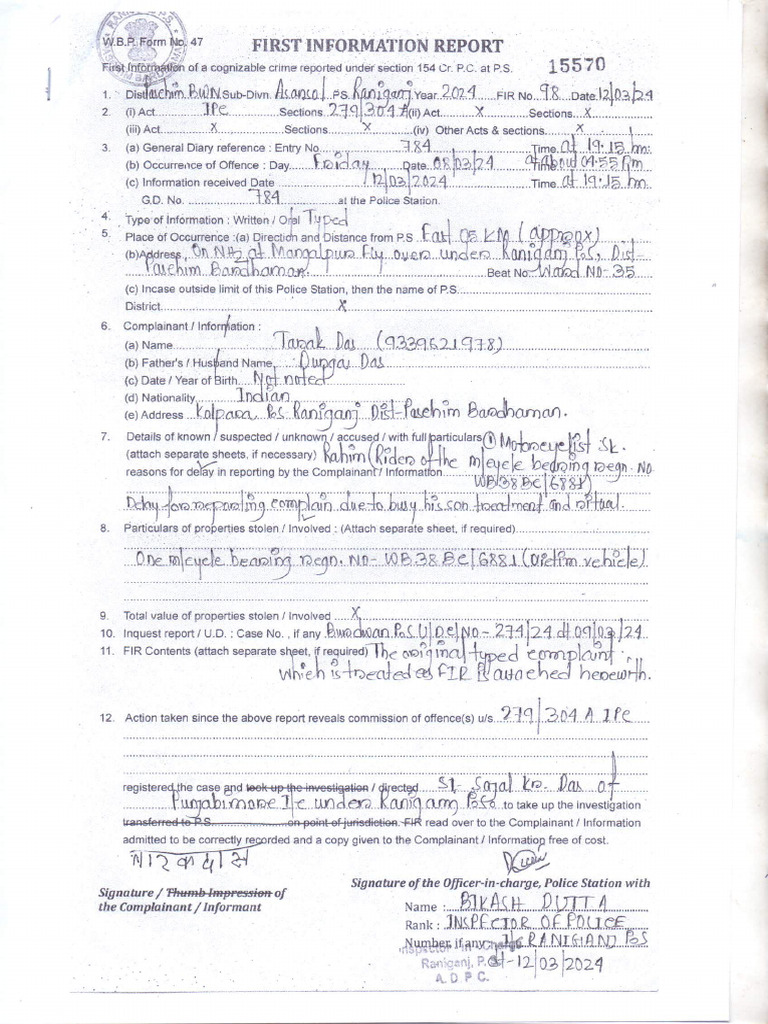 W.B.P. Form No. 47
FIRST INFORMATION REPORT
First Information of a cognizable crime reported under section 154 Cr. P.C. at P.S. 15570
1. Dist Paschim BWN Sub-Divn. Asansol P.S. Raniganj Year 2024 FIR No. 98 Date 12/03/24
2. (i) Act IPC Sections 279/304 A (ii) Act X Sections X
(iii) Act X Sections X (iv) Other Acts & sections X
3. (a) General Diary reference : Entry No. 784 Time at 19:15 hrs.
(b) Occurrence of Offence : Day Friday Date 08/03/24 at About 04:55 Pm
(c) Information received Date 12/03/2024 Time at 19:15 hrs.
G.D. No. 784 at the Police Station.
4. Type of Information : Written / Oral Typed
5. Place of Occurrence :(a) Direction and Distance from P.S East 05 KM (approx)
(b)Address On NH2 at Mangalpur Fly over under Raniganj PS, Dist-
Paschim Bardhaman. Beat No. Ward No-35
(c) Incase outside limit of this Police Station, then the name of P.S.
District X
6. Complainant / Information :
(a) Name Tarak Das (9339621978)
(b) Father's / Husband Name : Durga Das
(c) Date / Year of Birth Not noted
(d) Nationality Indian
(e) Address Kalpara PS Raniganj Dist-Paschim Bardhaman.
7. Details of known / suspected / unknown / accused / with full particulars ① Motorcyclist Sk.
(attach separate sheets, if necessary) Rahim (Rider of the m/cycle bearing regn. No
reasons for delay in reporting by the Complainant / Information WB38BC/6881)
Delay for reporting complain due to busy his son treatment and ritual.
8. Particulars of properties stolen / Involved : (Attach separate sheet, if required)
One m/cycle bearing regn. No- WB.38 BC/6881 (victim vehicle)
9. Total value of properties stolen / Involved X
10. Inquest report / U.D. : Case No., if any Burdwan PS U/D/C/No- 274/24 dt 09/03/24
11. FIR Contents (attach separate sheet, if required) The original typed complaint
which is treated as FIR is attached herewith.
12. Action taken since the above report reveals commission of offence(s) u/s 279/304 A IPC
registered the case and took up the investigation / directed SI- Sajal Kr. Das of
Punjabimore I/C under Raniganj PS to take up the investigation
transferred to P.S. on point of jurisdiction. FIR read over to the Complainant / Information
admitted to be correctly recorded and a copy given to the Complainant / Information free of cost.
तारक दास
Signature / Thumb Impression of
the Complainant / Informant
Signature of the Officer-in-charge, Police Station with
Name : BIKASH DUTTA
Rank : INSPECTOR OF POLICE
Number, if any I/C RANIGANJ PS
Inspector in Charge
Raniganj, P.S. dt-12/03/2024
A.D.P.C.